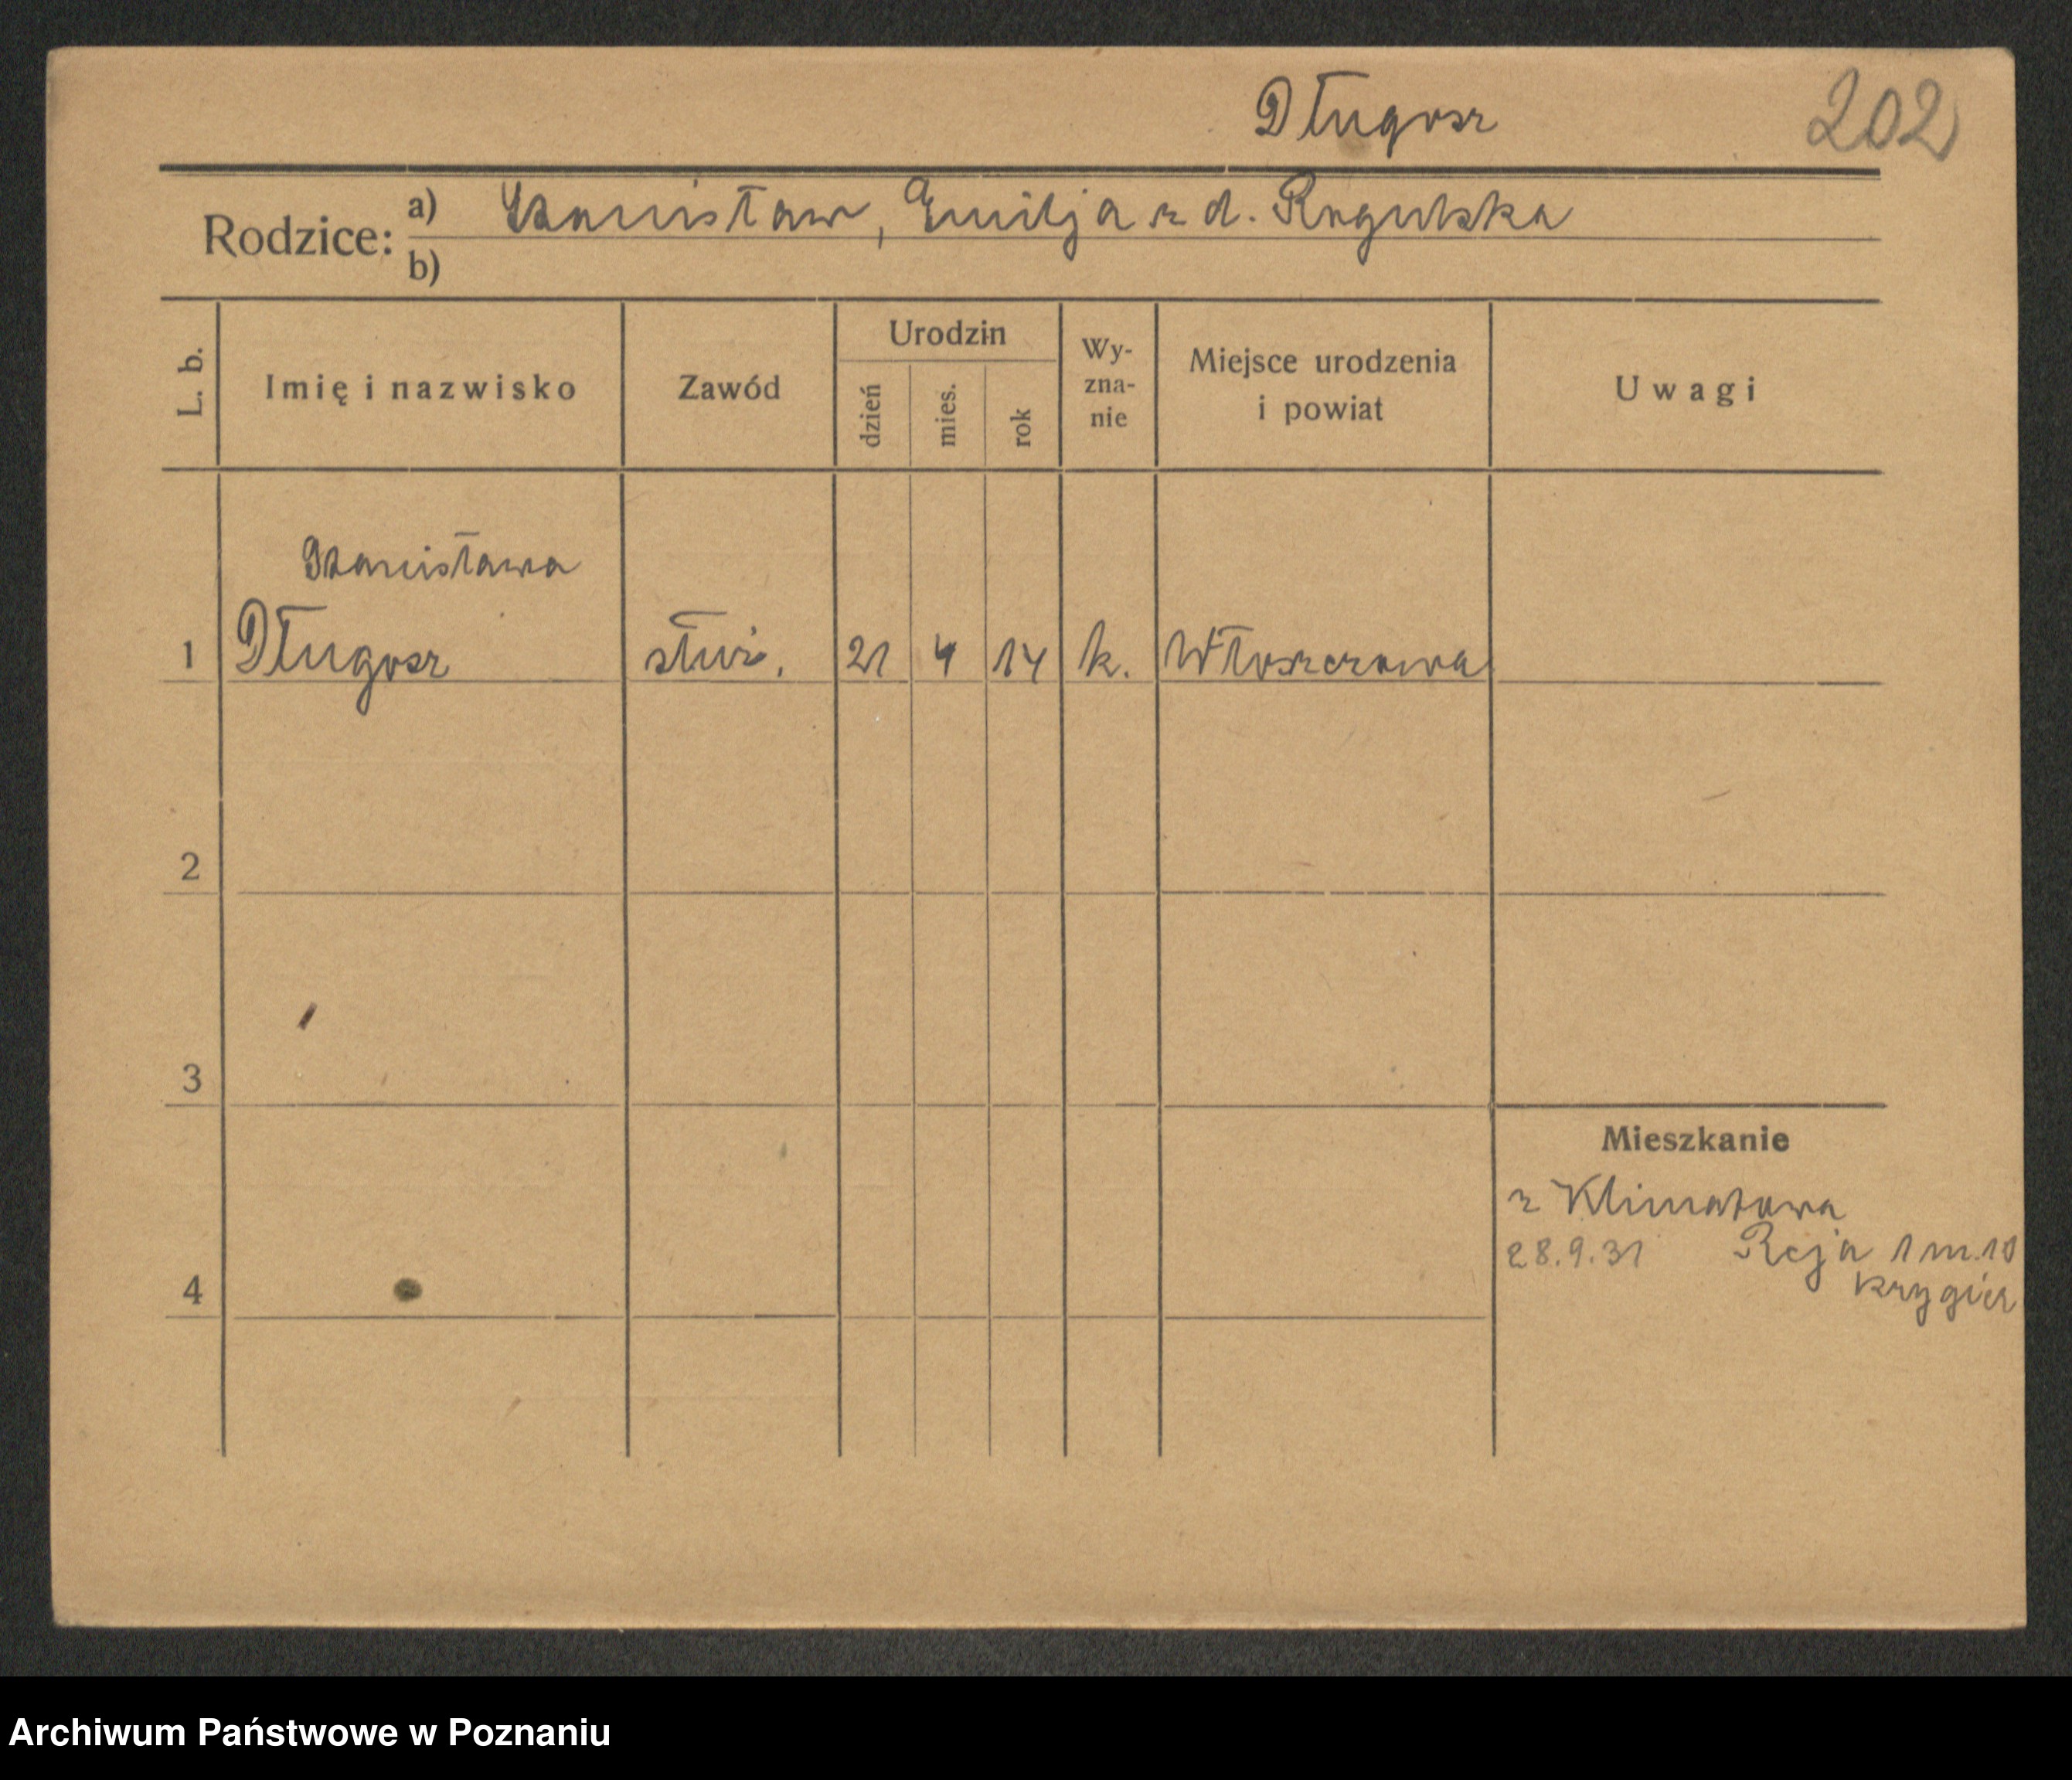 Długosz 202
Rodzice: a) Stanisław, Emilja z d. Rogulska
b)
L. b. Imię i nazwisko Zawód Urodzin dzień mies. rok Wy-zna-nie Miejsce urodzenia i powiat Uwagi
Stanisława
1 Długosz służ. 21 4 14 k. Włoszczowa
2
3
Mieszkanie
z Klimatowa
28.9.31 Reja 1 m. 10
4 Krygier
Archiwum Państwowe w Poznaniu